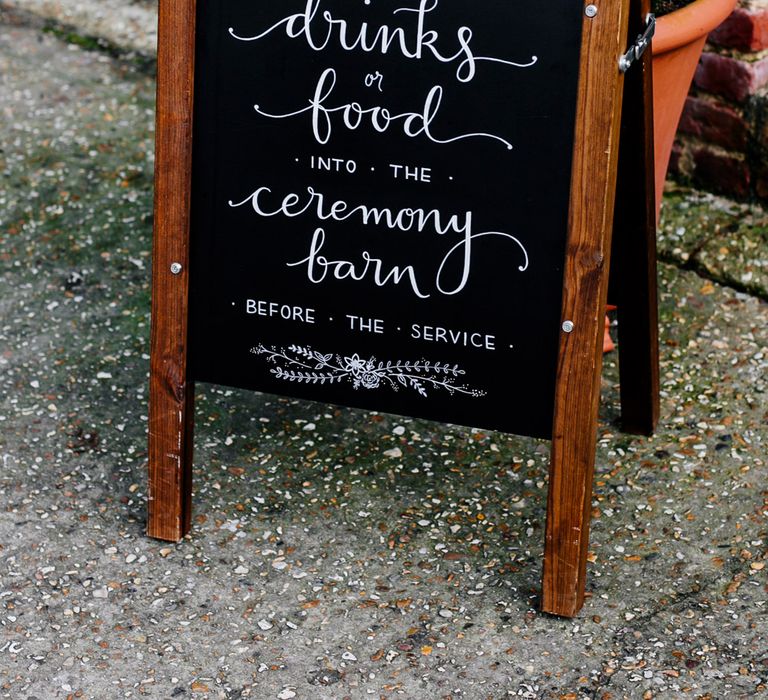 drinks
or
food
· INTO · THE ·
ceremony
barn
· BEFORE · THE · SERVICE ·